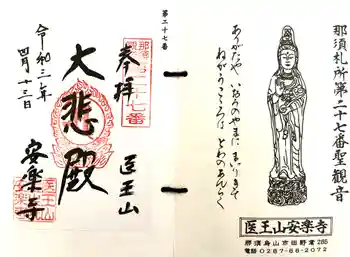 那須札所第二十七番聖観音
あがたや いおうのやまに まいりきて
ねがうこころは とわのあんらく
医王山安楽寺
那須烏山市田野倉285
電話0287-88-2072
第二十七番
奉拝
医王山
大悲殿
安楽寺
令和三年
四月十三日